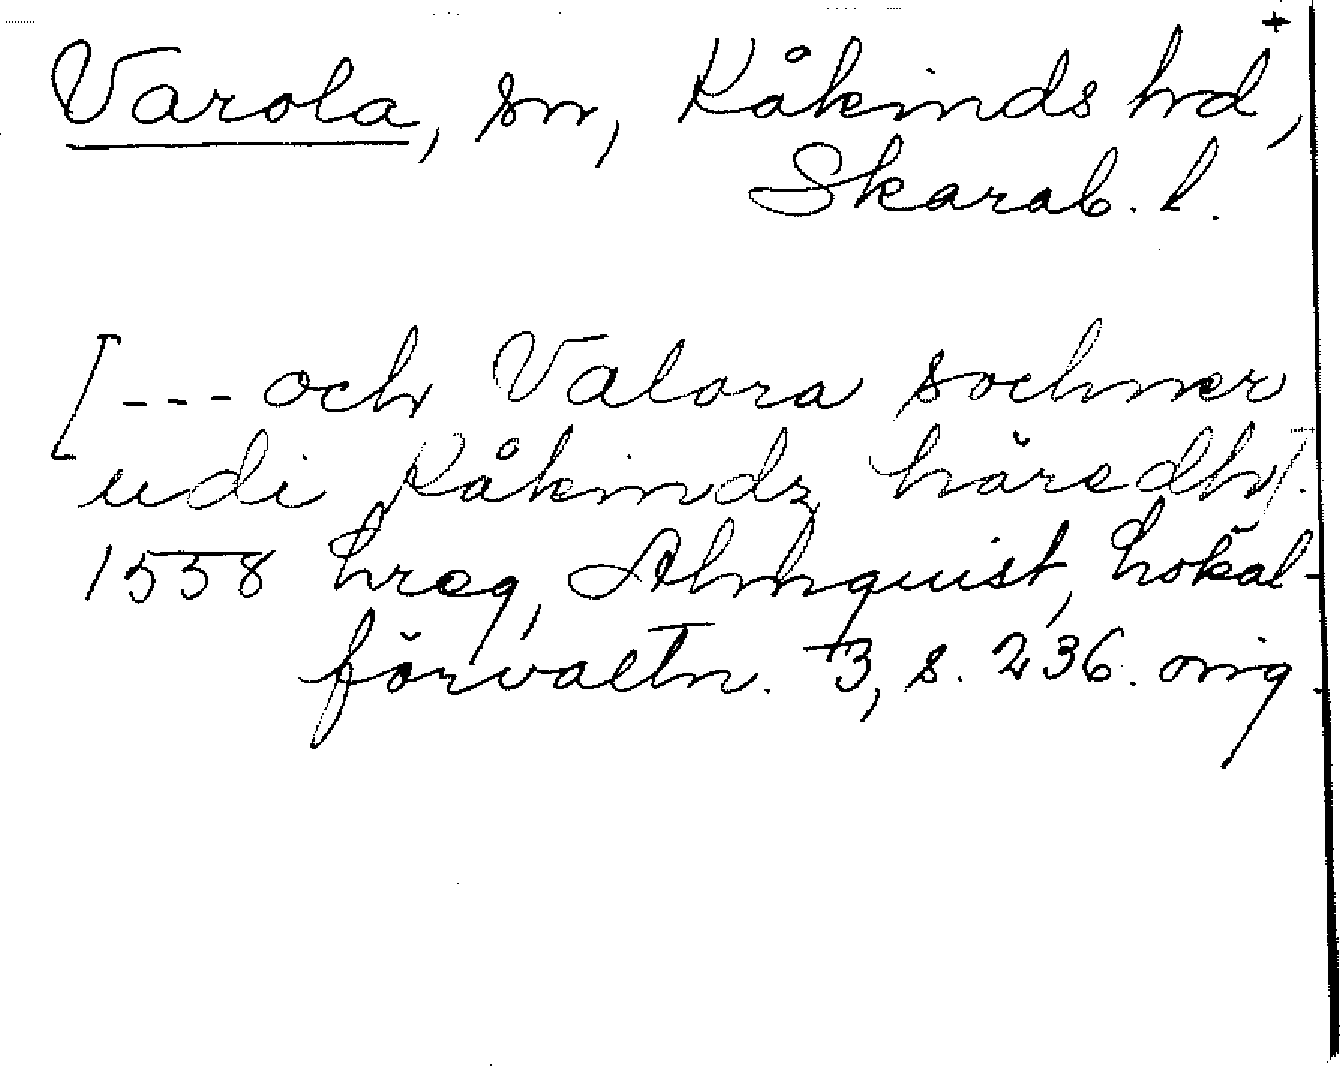 +
Varola, sn, Kåkinds hd,
Skarab. l.
[--- och Valora sochner
udi Kåkindz häredh].
1558 Lreg, Almquist, Lokal-
förvaltn. 3, s. 236. orig.